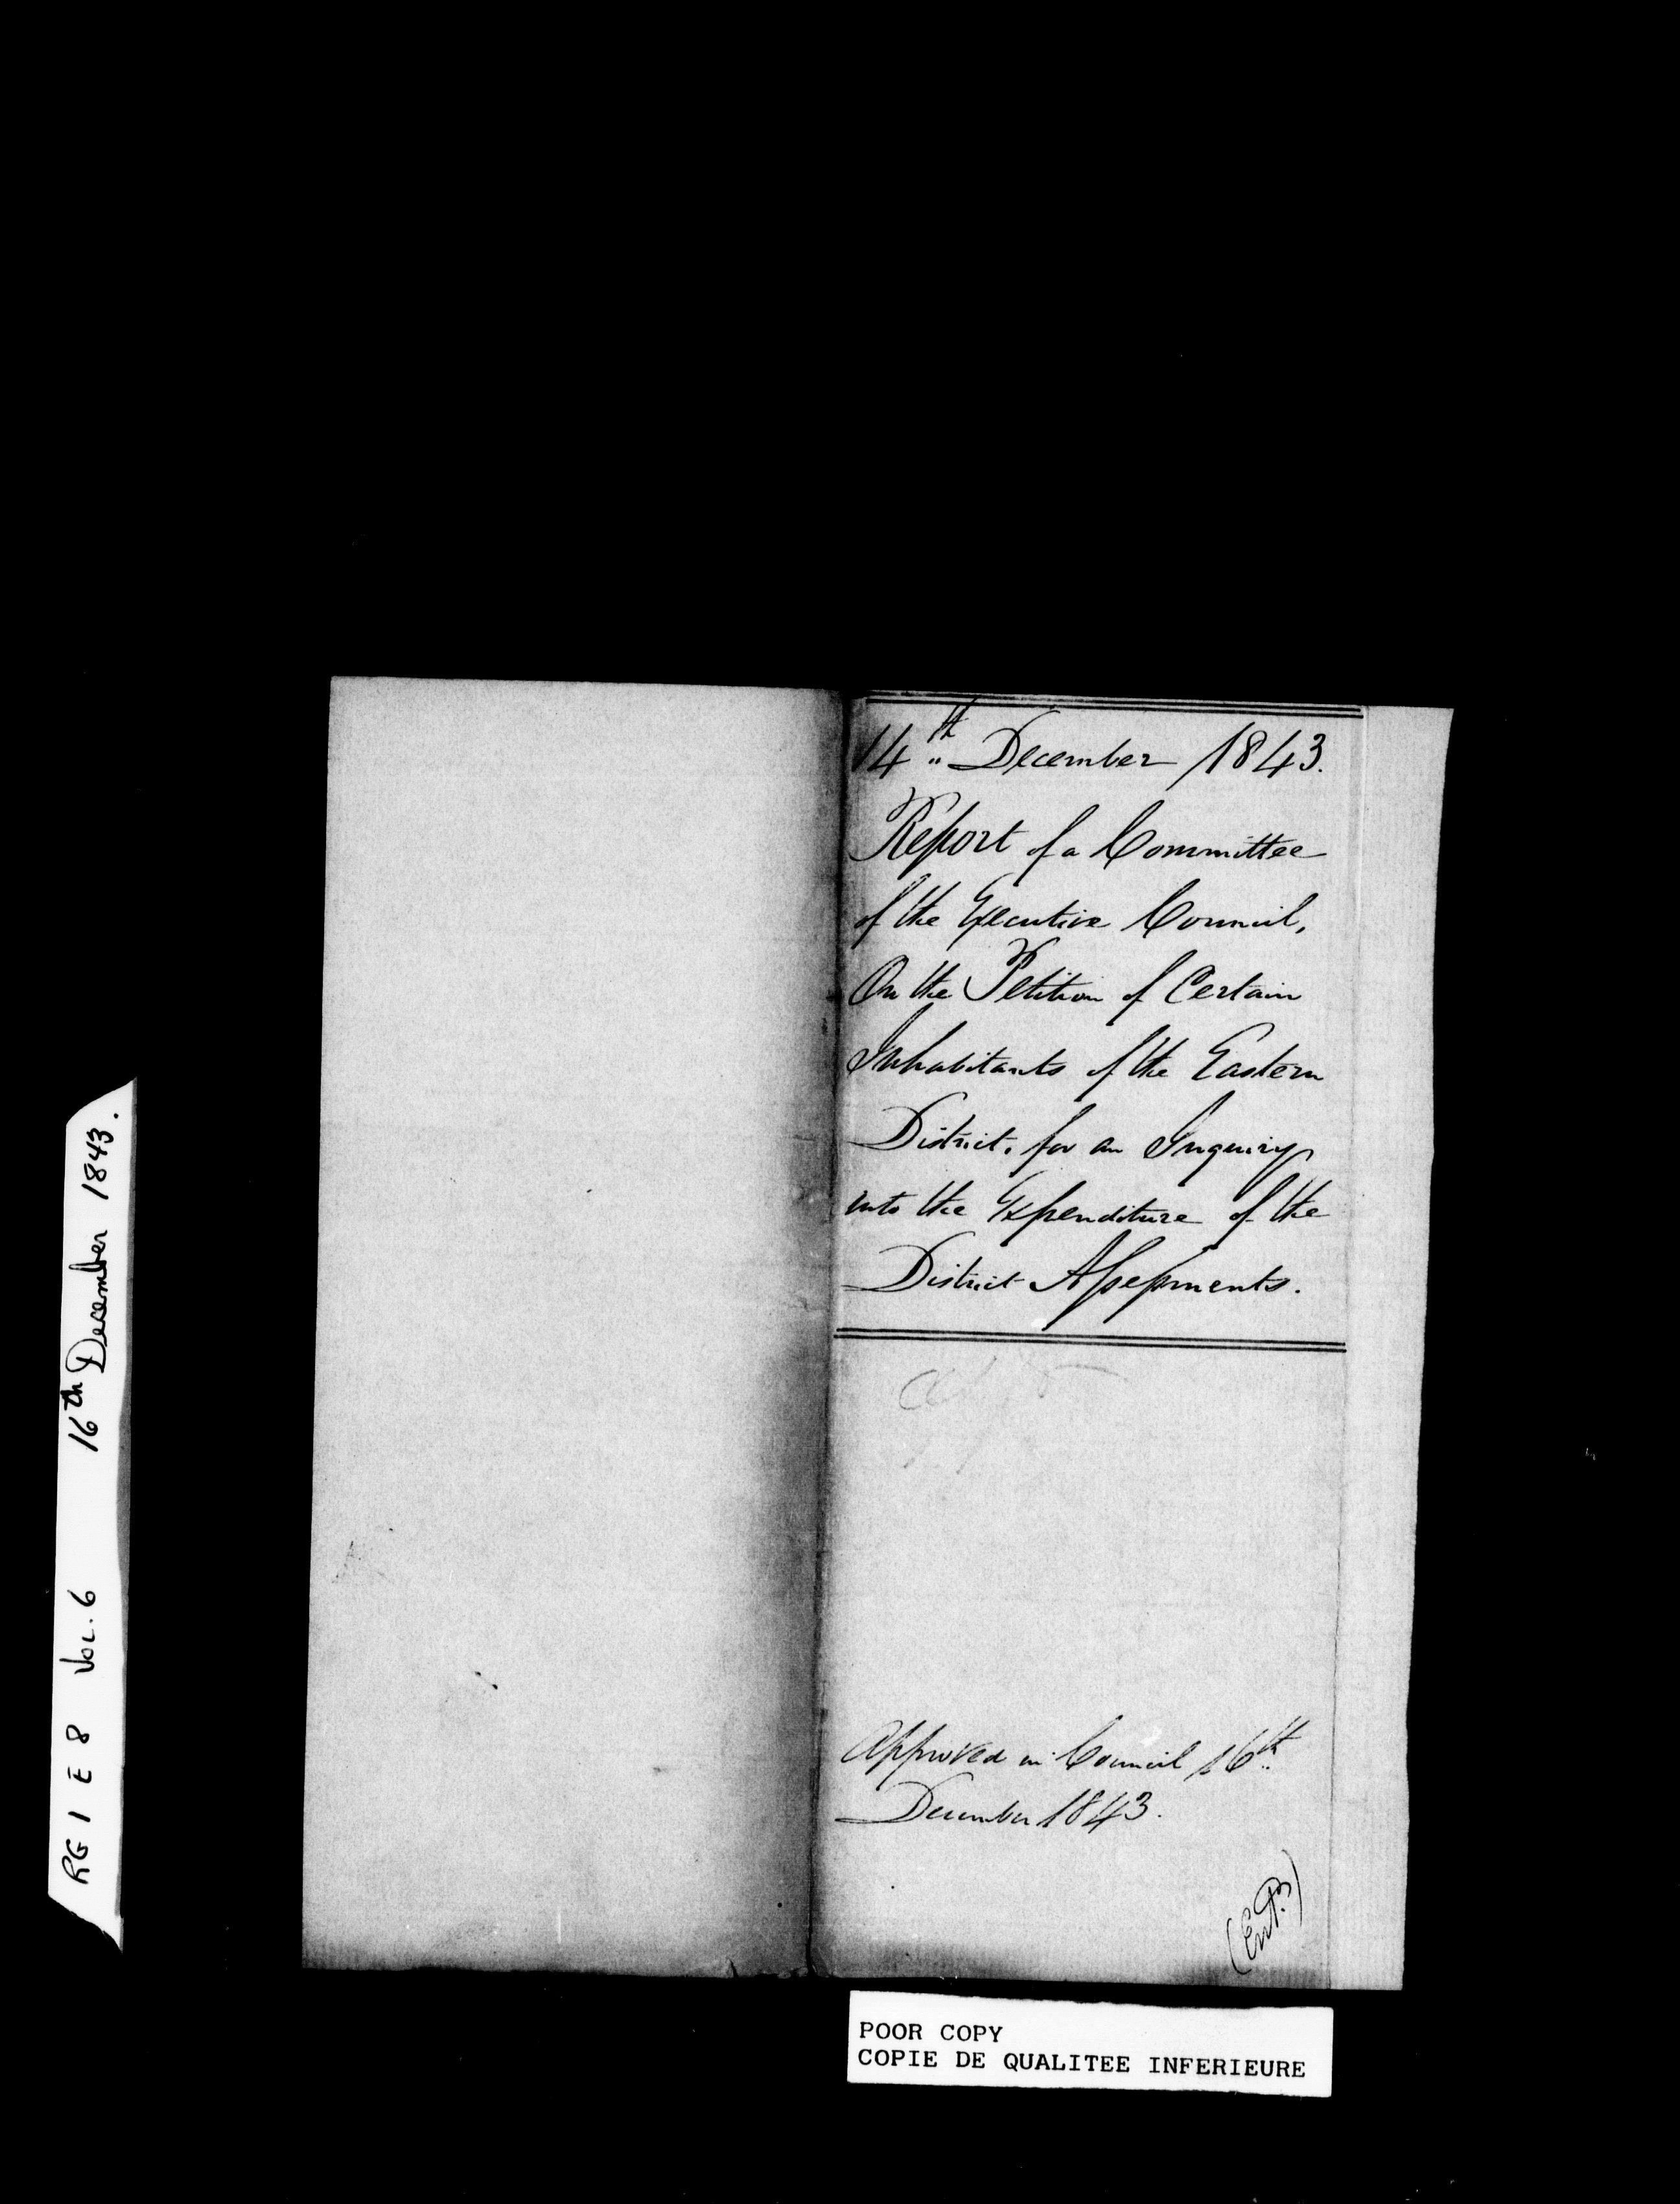 14th December 1843.
Report of a Committee
of the Executive Council,
On the Petition of Certain
Inhabitants of the Eastern
District, for an Inquiry
into the Expenditure of the
District Assessments.
Approved in Council 16th
December 1843.
RG 1 E 8 Vol. 6 16th December 1843.
POOR COPY
COPIE DE QUALITEE INFERIEURE